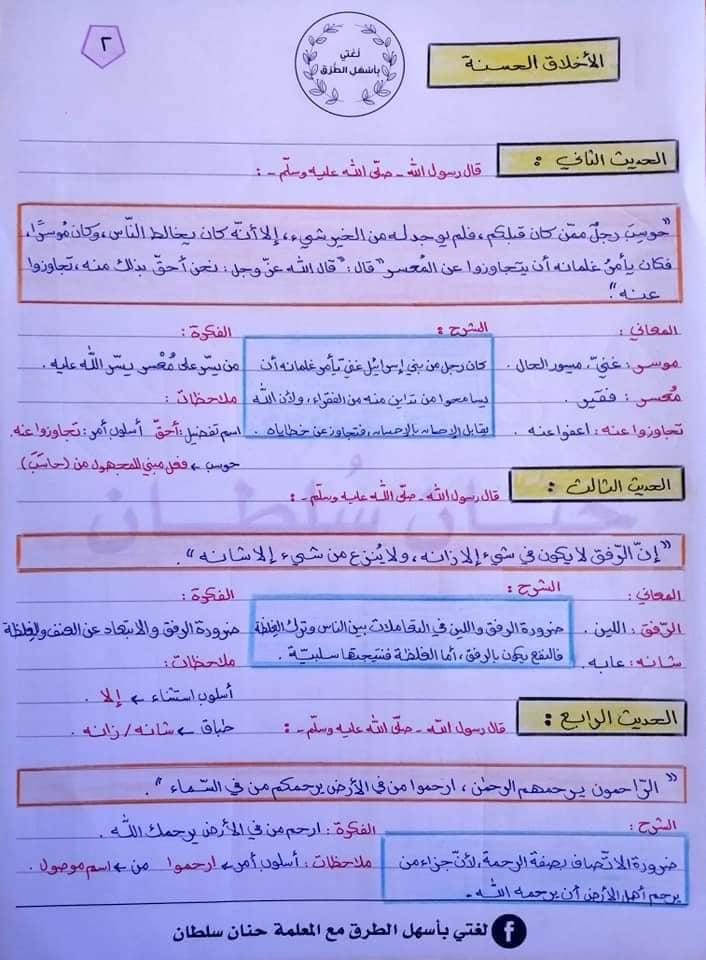 ٢
لغتي
بأسهل الطرق
الأخلاق الحسنة
الحديث الثاني :
قال رسول الله - صلّى الله عليه وسلّم - :
"حوسِبَ رجلٌ ممّن كان قبلكم، فلم يوجد له من الخير شيء، إلا أنّه كان يخالط النّاس، وكان مُوسرًا،
فكان يأمرُ غلمانه أن يتجاوزوا عن المُعسر" قال : "قال الله عزّ وجل : نحن أحقّ بذلك منه، تجاوزوا
عنه".
المعاني :
موسر : غنيّ، ميسور الحال .
مُعسر : فقير .
تجاوزوا عنه : اعفوا عنه
الشرح :
كان رجل من بني إسرائيل غني يأمر غلمانه أن
يسامحوا من تداين منه من الفقراء، ولأن الله
يقابل الإحسان بالإحسان، فتجاوز عن خطاياه .
الفكرة :
من يسّر على مُعْسر يسّر اللّٰه عليه .
ملاحظات :
اسم تفضيل : أحقّ أسلوب أمر : تجاوزوا عنه
حوسب ← فعل مبني للمجهول من (حاسَبَ)
الحديث الثالث :
قال رسول الله - صلّى الله عليه وسلّم - :
حنان سُلطان
"إنّ الرّفق لا يكون في شيء إلا زانه، ولا يُنزع من شيء إلا شانه".
المعاني :
الرّفق : اللين .
شانه : عابه .
الشرح :
ضرورة الرفق واللين في التعاملات بين الناس وترك الغلظة
فالنفع يكون بالرفق، أما الغلظة فنتيجتها سلبيّة .
الفكرة :
ضرورة الرفق والابتعاد عن العنف والغلظة
ملاحظات :
أسلوب استثناء ← إلا .
طباق ← شانه / زانه .
الحديث الرابع :
قال رسول الله - صلّى الله عليه وسلّم - :
"الرّاحمون يرحمهم الرحمٰن، ارحموا من في الأرض يرحمكم من في السّماء".
الشرح :
ضرورة الاتّصاف بصفة الرحمة، لأنّ جزاء من
يرحم أهل الأرض أن يرحمه الله .
الفكرة : ارحم من في الأرض يرحمك اللّٰه .
ملاحظات : أسلوب أمر ← ارحموا من ← اسم موصول .
لغتي بأسهل الطرق مع المعلمة حنان سلطان